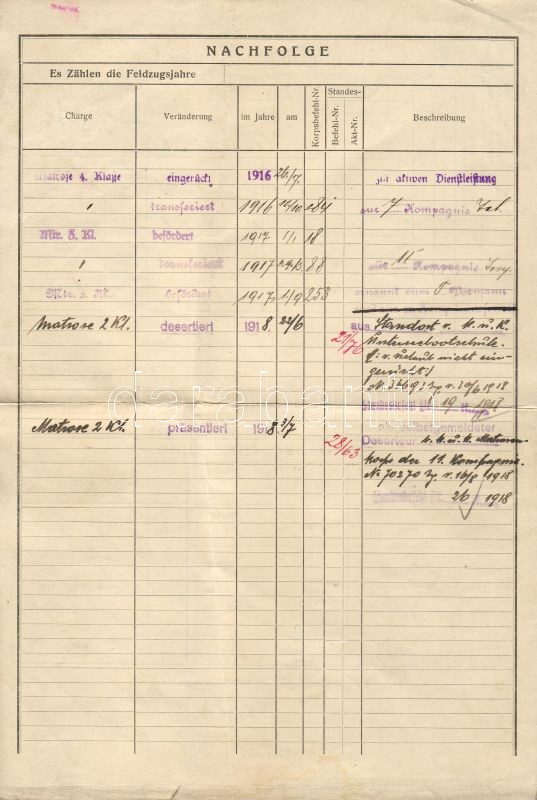 NACHFOLGE
Es Zählen die Feldzugsjahre
Charge Veränderung im Jahre am Korpsbefehl-Nr. Standes- Befehl-Nr. Akt-Nr. Beschreibung
Matrose 4. Klaße eingerückt 1916 26/7. zur aktiven Dienstleistung
" transferiert 1916 10/10 284 zur 7 Kompagnie
Mtr. 3. Kl. befördert 1917 1/1 18
" transferiert 1917 88 zur 11 Kompagnie
Mtr. 2. Kl. befördert 1917 1/9 253 ernannt zum Vormann
Matrose 2 Kl. desertiert 1918 22/6 21/76 aus Standort v. k. u. k.
Unterseebootschule
v. urlaub nicht ein-
gerückt
No 3669 v. 30/6 1918
19 1918
Matrose 2 Kl. präsentiert 1918 3/7 28/63 als selbstgemeldeter
Deserteur k. u. k. Matrosen-
korps der 11. Kompagnie
No 70270 v. 16/8 1918
26 1918
darabanth